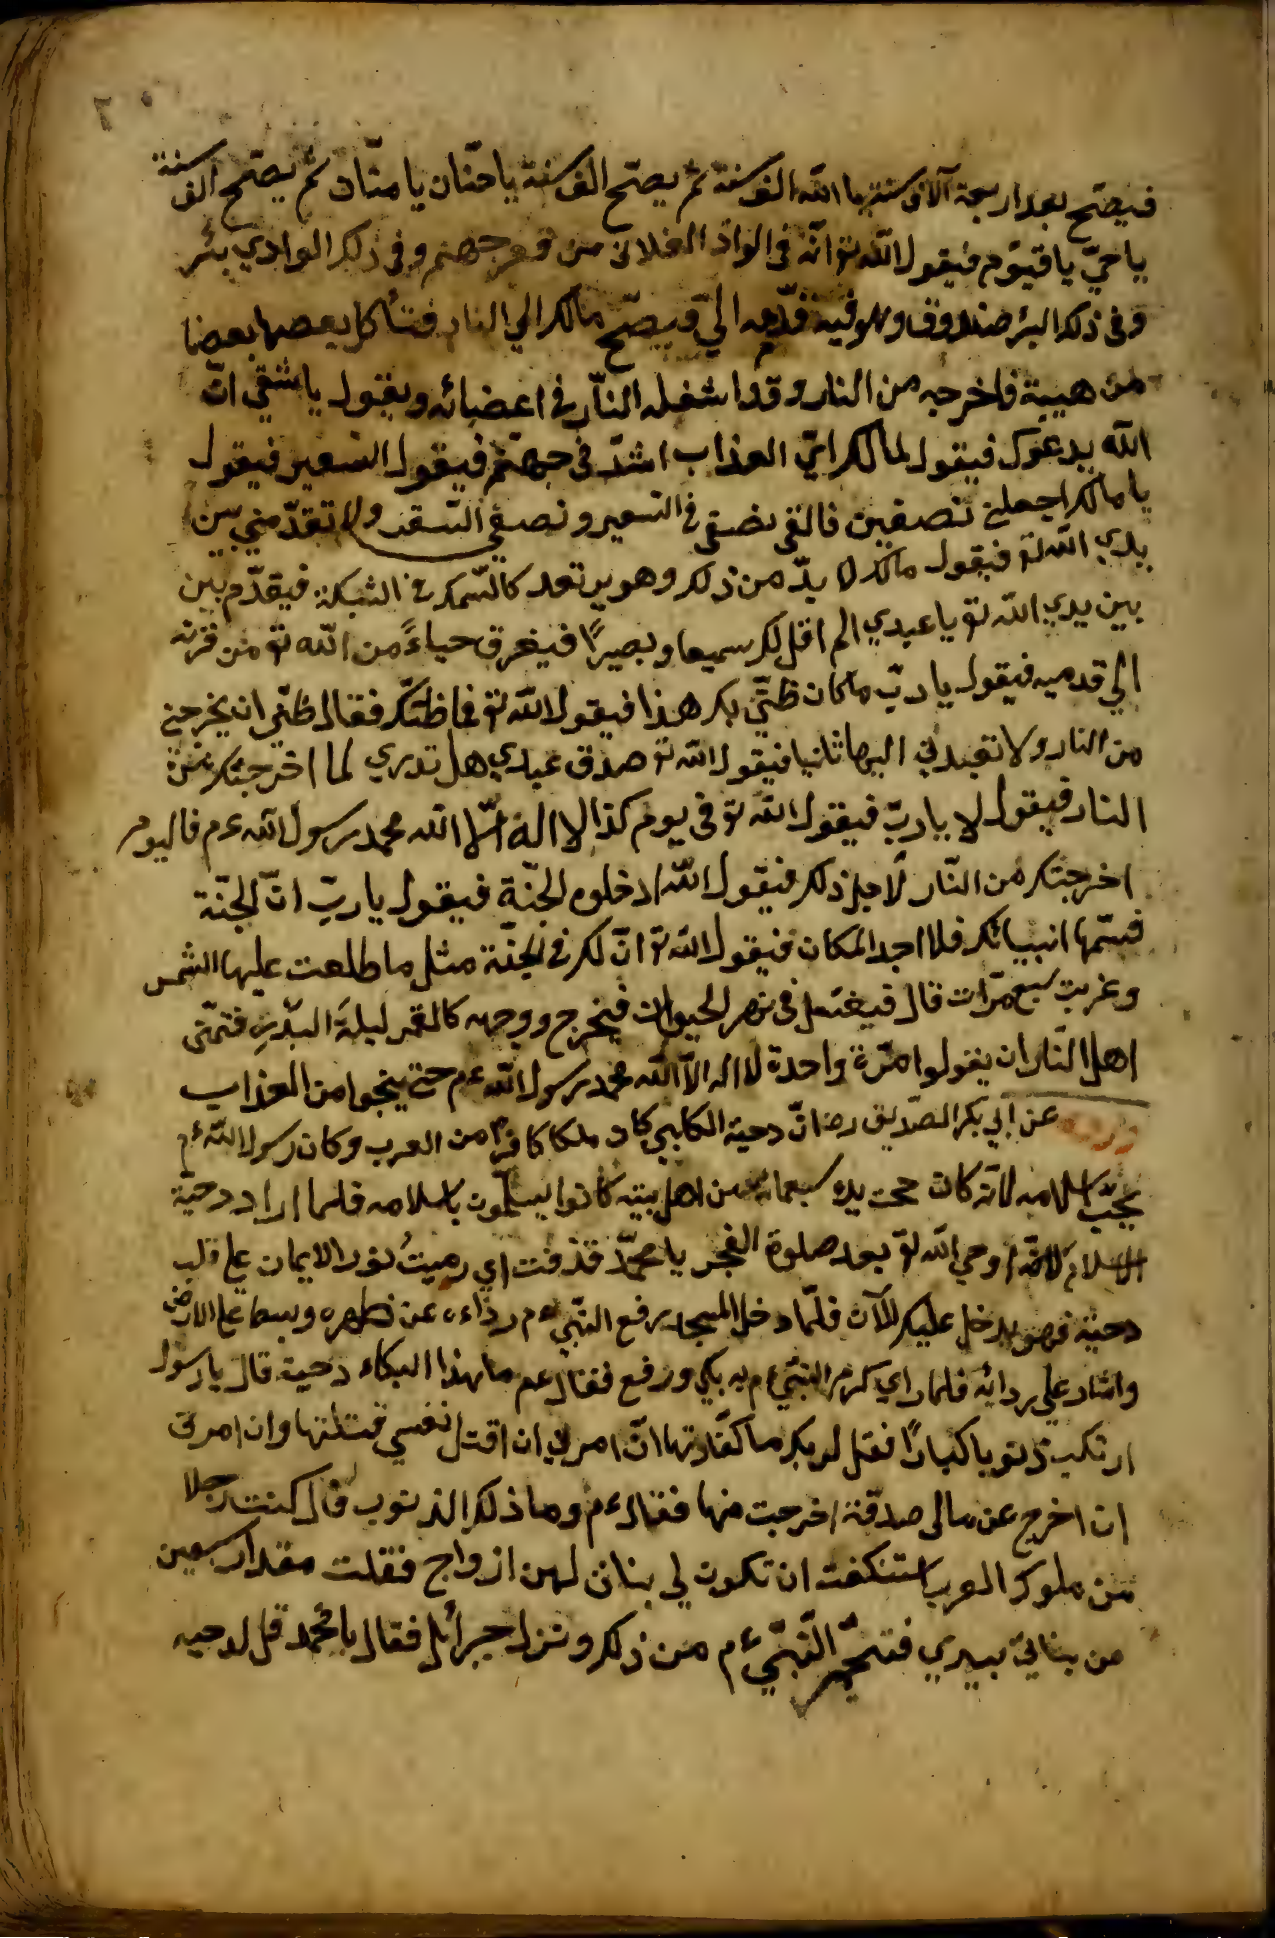 فيصيح بعد اربعة آلاف سنة يا الله الف سنة ثم يصيح الف سنة يا حنّان يا منّان ثم يصيح الف سنة
يا حيّ يا قيوم فيقول الله تع انّه في الواد الفلاني من قعر جهنم وفي ذلك الوادي بئر
وفي ذلك البئر صندوق وهو فيه فدّمه اليّ فيصيّح مالك الي النار فتأكل بعضها بعضا
من هيبة فاخرجه من النار وقد اشغله النّار في اعضائه ويقول يا شقي انّ
الله يدعوك فيقول لمالك ايّ العذاب اشدّ في جهنّم فيقول السّعير فيقول
يا مالك اجعلني نصفين فالقي نصفي في السّعير ونصفي السّقر ولا تقدّمني بين
يدي الله تع فيقول مالك لا بدّ من ذلك وهو يرتعد كالسّمك في الشبكة فيقدّم بين
بين يدي الله تع يا عبدي الم اقل لك سميعا وبصيرًا فيغرق حياءً من الله تع من قرنه
الي قدميه فيقول يا ربّ ما كان ظنّي بك هذا فيقول الله تع فما ظنّك فقال ظنّي ان يخرجني
من النار ولا تعيدني اليها ثانيا فيقول الله تع صدق عبدي هل تدري لما اخرجتك من
النار فيقول لا يا ربّ فيقول الله تع في يوم كذا لا اله الّا الله محمد رسول الله عم فاليوم
اخرجتك من النّار لأجل ذلك فيقول الله ادخلوه الجنّة فيقول يا ربّ انّ الجنّة
قسّمها انبيائك فلا اجد المكان فيقول الله تع انّ لك في الجنّة مثل ما طلعت عليها الشمس
وغربت سبع مرّات قال فيغتسل في نهر الحيوان فيخرج ووجهه كالقمر ليلةَ البدرِ فتمنّى
اهل النّار ان يقولوا مرّة واحدة لا اله الّا الله محمد رسول الله عم حتى ينجوا من العذاب
عن ابي بكر الصّديق رض انّ دحية الكلبي كان ملكا كافرا من العرب وكان رسول الله عم
يحبّ اسلامه لأنّه كان تحت يده سبعمائة من اهل بيته كانوا يسلمون باسلامه فلما اراد دحية
الاسلام اوحي الله تع بعد صلوة الفجر يا محمّد قذفت اي رميتُ نور الايمان على قلب
دحية فهو يدخل عليك الآن فلمّا دخل المسجد رفع النّبي عم رداءه عن ظهره وبسط على الارض
واشار علي ردائه فلما راي كرم النبّي عم به بكي ورفع فقال عم ما هذا البكاء دحية قال يا رسول
ارتكبت ذنوبا كبارًا فقل لربك ما كفّارتها انّ امرني ان اقتل نفسي قتلتها وان امرني
ان اخرج عن مالي صدقة اخرجت منها فقال عم وما ذلك الذنوب قال كنت رجلا
من ملوك العرب استنكفت ان تكون لي بنات لهن ازواج فقلت مقدار سبعين
من بناتي بيدي فتحيّر النّبّي عم من ذلك ونزل جبرائل فقال يا محمد قل لدحيه